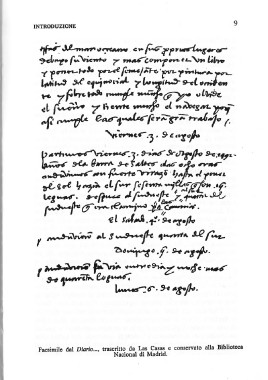 INTRODUZIONE
9
del mar oceano en sus proprios lugares
debaxo su viento y mas componer un libro
y poner todo por el semejante por pintura por
latitud del equinocial y longitud del occiden
te y sobre todo cumple mucho que yo olvide
el sueño y tiente mucho el navegar porque
asi cumple las quales seran gran trabajo
viernes .3. de agosto
partimos viernes .3. dias de agosto de
años de la barra de saltes a las ocho oras
anduvimos con fuerte virazon hasta el poner
del sol hazia el sur sesenta millas que son .15.
leguas. despues al sudueste y al sur quarta del
sudueste que era el camino pa las canarias.
El sabado .4. de agosto
y anduvieron al sudueste quarta del sur
Domingo .5. de agosto.
y anduvieron su via entre dia y noche mas
de quarenta leguas.
lunes .6. de agosto.
Facsimile del Diario..., trascritto da Las Casas e conservato alla Biblioteca
Nacional di Madrid.